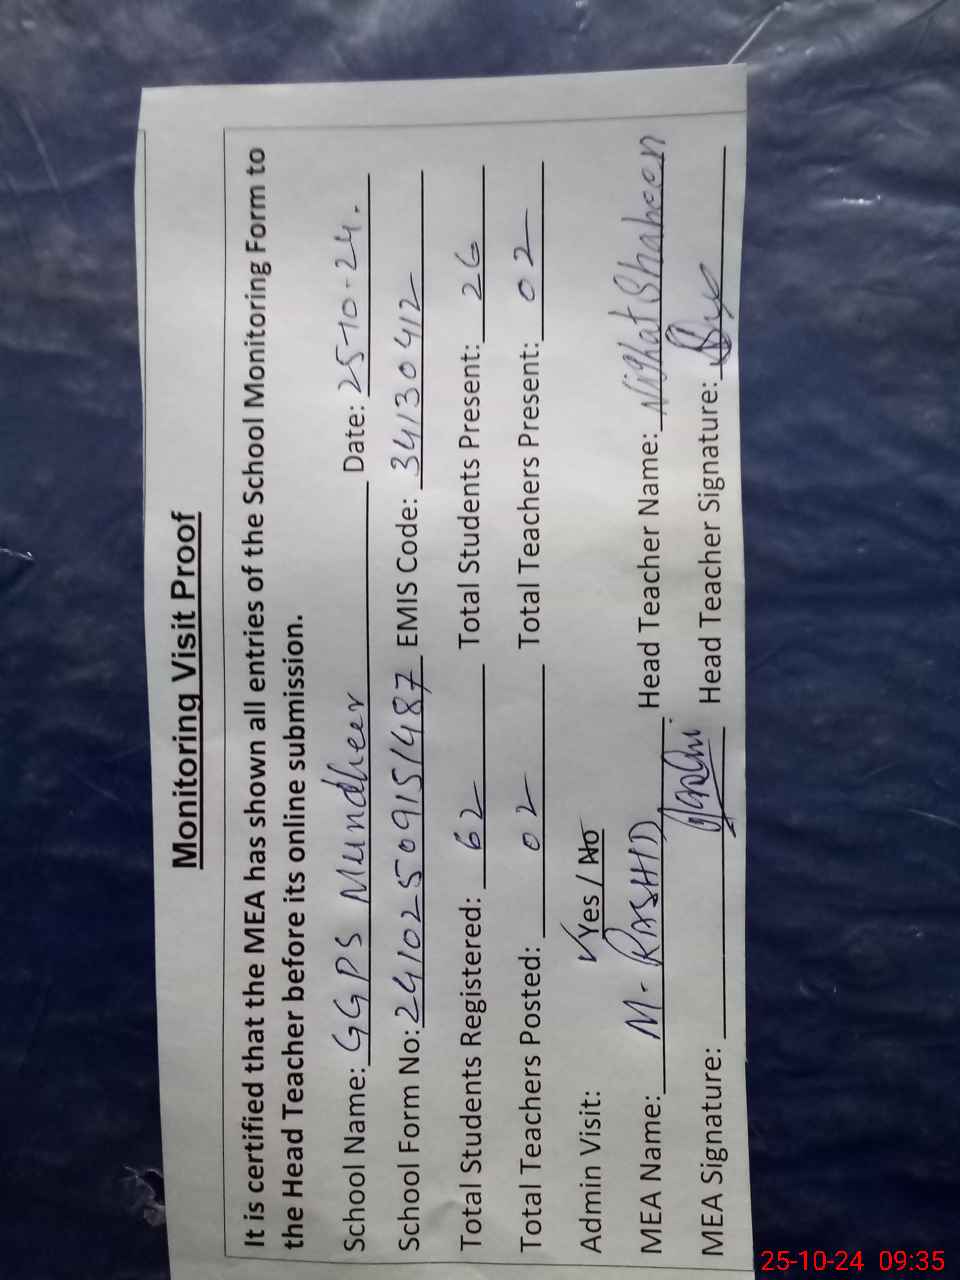 Monitoring Visit Proof
It is certified that the MEA has shown all entries of the School Monitoring Form to
the Head Teacher before its online submission.
School Name: GGPS Mundheer Date: 25-10-24.
School Form No: 24102509151487 EMIS Code: 34130412
Total Students Registered: 62 Total Students Present: 26
Total Teachers Posted: 02 Total Teachers Present: 02
Admin Visit: ✓Yes / No
MEA Name: M. RASHID Head Teacher Name: Nighat Shaheen
MEA Signature: Head Teacher Signature:
25-10-24 09:35